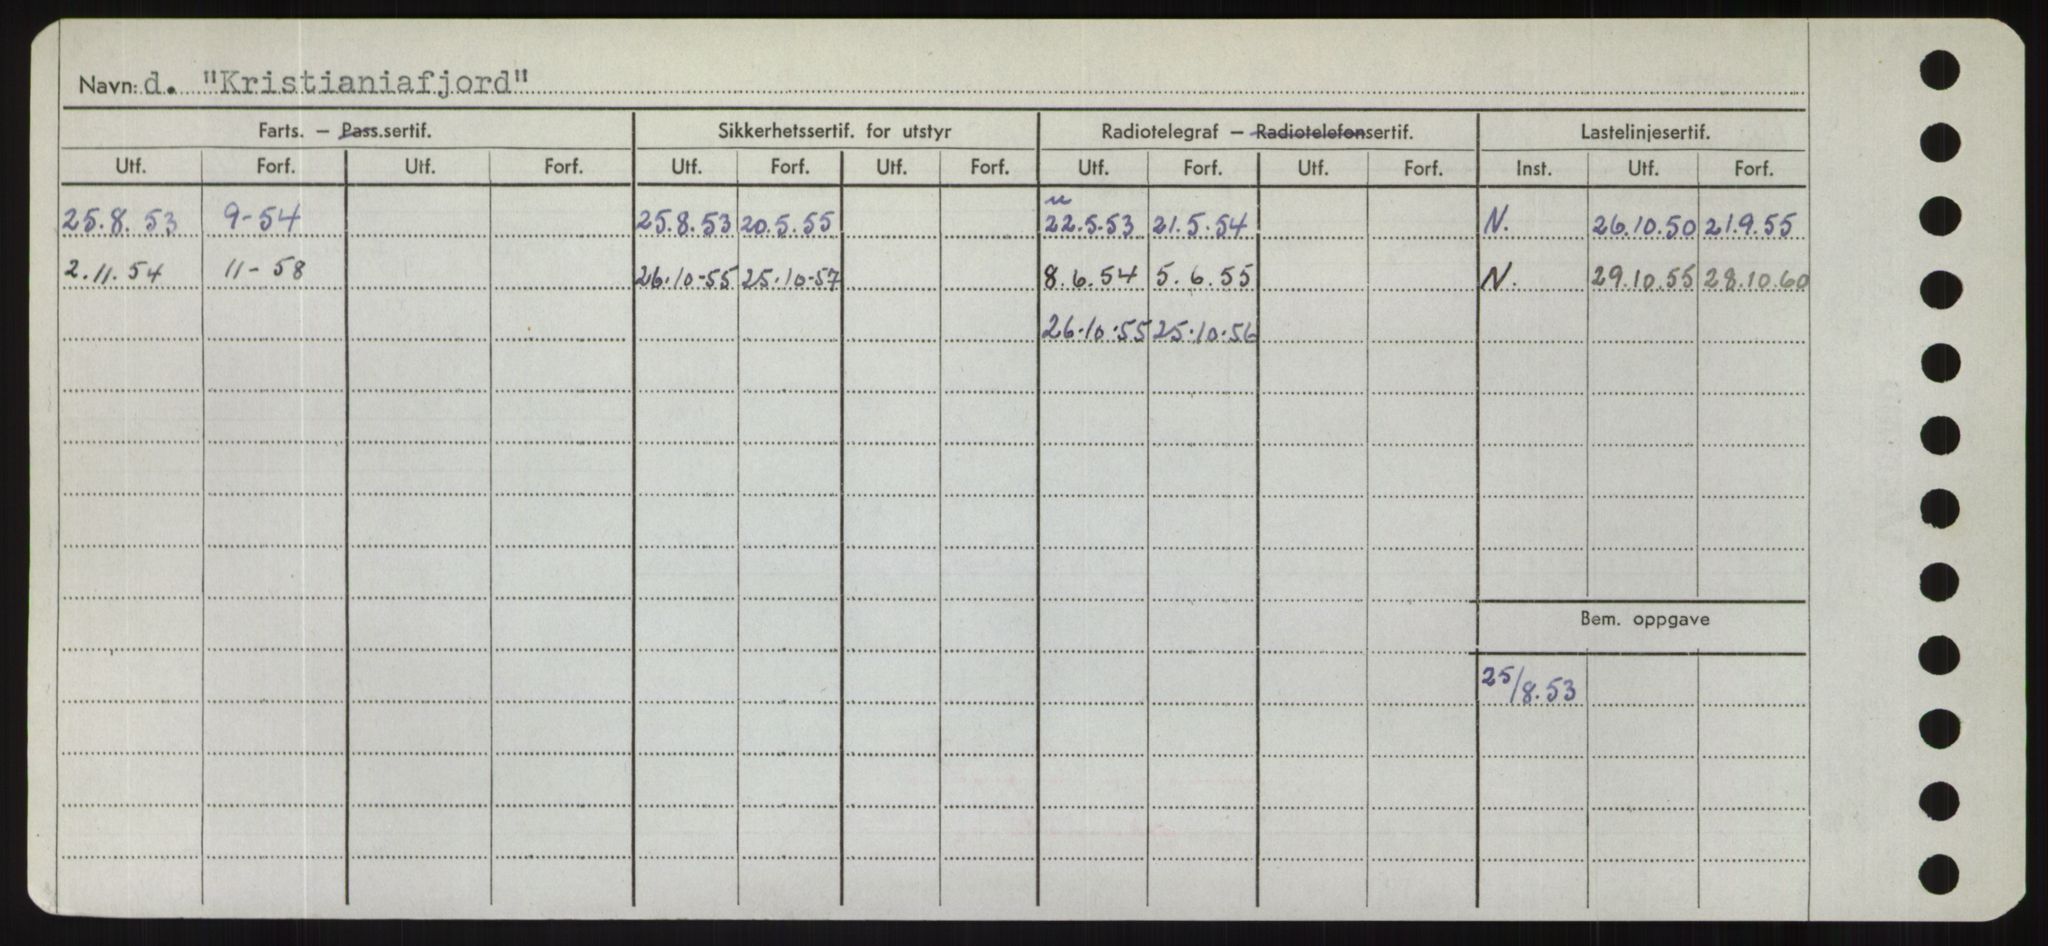 Navn: d. "Kristianiafjord"
Farts. — Pass.sertif. Sikkerhetssertif. for utstyr Radiotelegraf — Radiotelefonsertif. Lastelinjesertif.
Utf. Forf. Utf. Forf. Utf. Forf. Utf. Forf. Utf. Forf. Utf. Forf. Inst. Utf. Forf.
25.8.53 9-54 25.8.53 20.5.55 22.5.53 21.5.54 N. 26.10.50 21.9.55
2.11.54 11-58 26.10-55 25.10-57 8.6.54 5.6.55 N. 29.10.55 28.10.60
26.10.55 25.10.56
Bem. oppgave
25/8.53